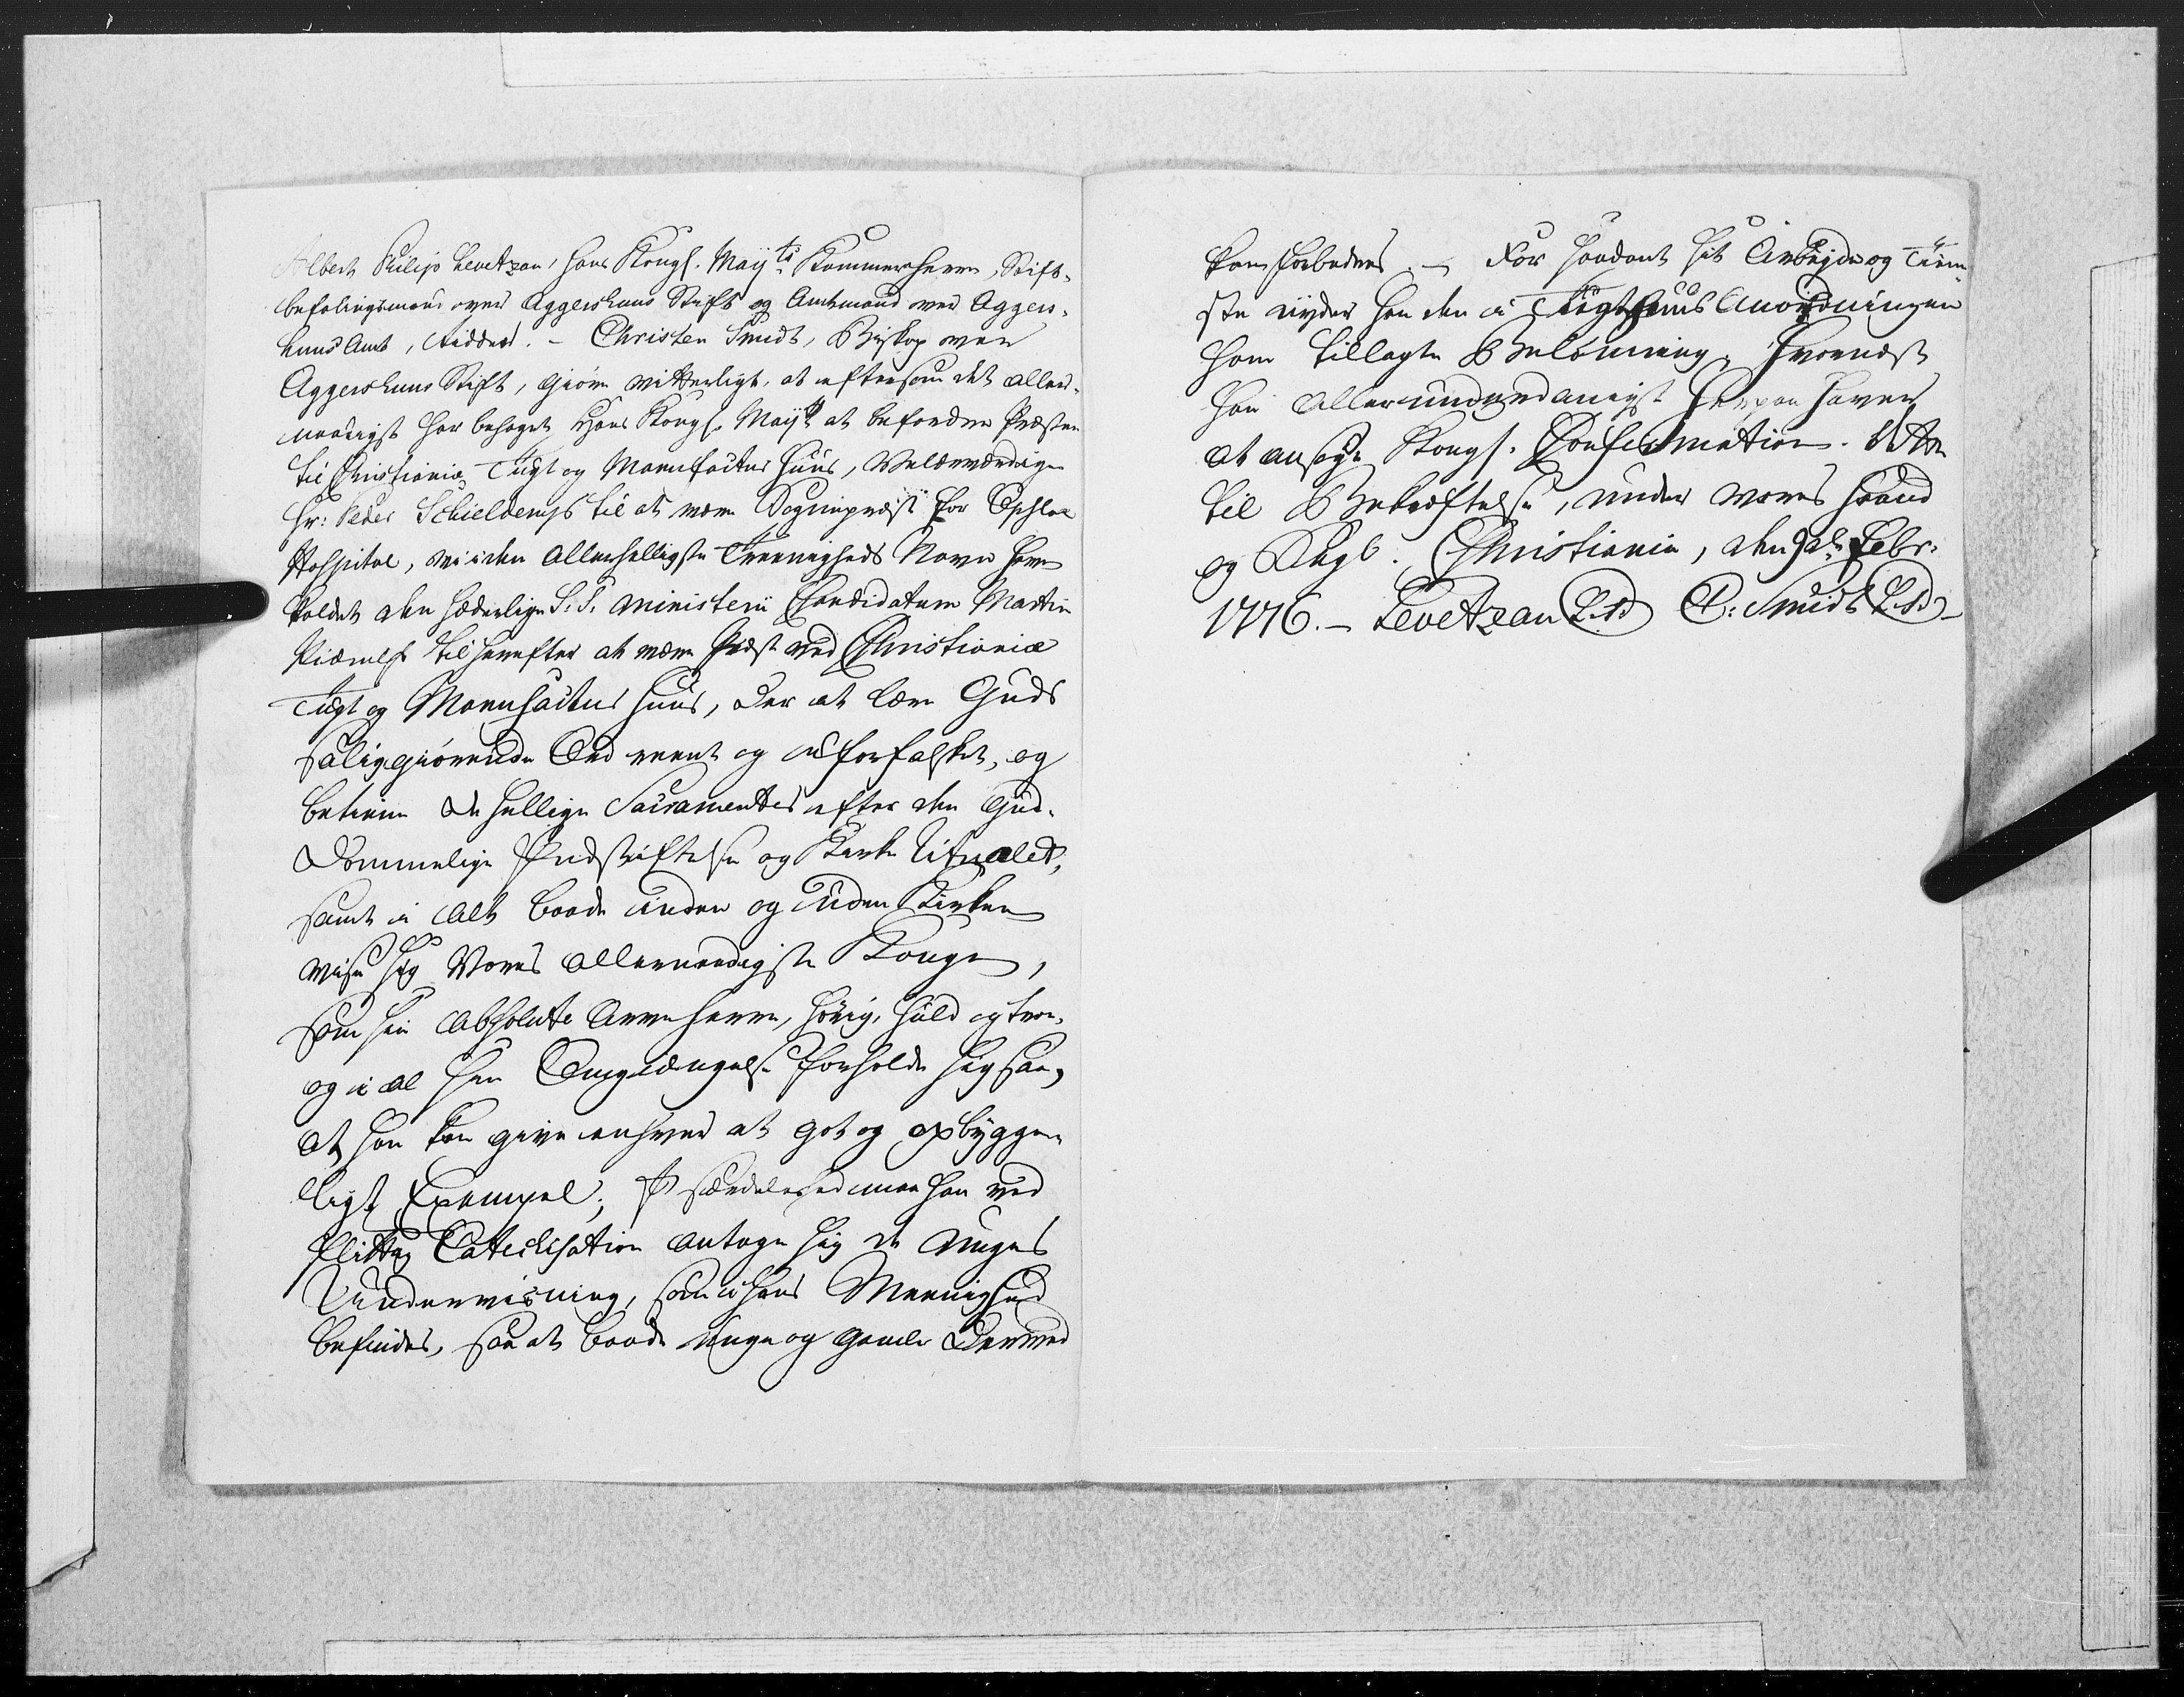 Albert Philip Levetzau, Hans Kongl. Mayts Kammerherre, Stift-
befalingsmand over Aggershuus Stift og Amtmand over Aggers-
huus Amt, Ridder. – Christen Smidt, Biskop over
Aggershuus Stift, giøre vitterligt, at eftersom det aller-
naadigst har behaget Hans Kongl. Mayt at befordre Præsten
til Christianiæ Tugt og Manufactur Huus, Velærværdige
Hr: Peder Schielderup til at være Sogneprest for Opsloe
Hospital, vi i den Allerhelligste Treenigheds Navn have
kaldet den hæderlige S. S. Ministerii Candidatum Martin
til herefter at være Præst ved Christianiæ
Tugt og Manufactur Huus, der at lære Guds
saliggiørende Ord reent og uforfalsket, og
betiene de hellige Sacramenter efter den Gud-
dommelige Indstiftelse og Kirke Ritualet,
samt i alt baade inden og uden Kirken
vise sig Vores allernaadigste Konge,
som sin absolute Arve Herre, hørig, huld og troe,
og i al sin Omgiængelse forholde sig saa,
at han kan give enhver et got og opbygge-
ligt Exempel; I særdeleshed maa han ved
flittig Catechisation antage sig de unges
Underviisning, som i hans Meenighed
befindes, saa at baade unge og gamle derved
kan forbedres. – For saadant sit Arbejde og Tiene-
ste nyder han den i Tugthuus Anordningen
ham tillagte Belønning. Hvornæst
han allerunderdanigst herpaa haver
at ansøge Kongl. Confirmation. Dette
til Bekræftelse, under vores Haand
og Segl. Christianie, den Febr.
1776. – Levetzau (L.S.) C: Smidt (L.S.)